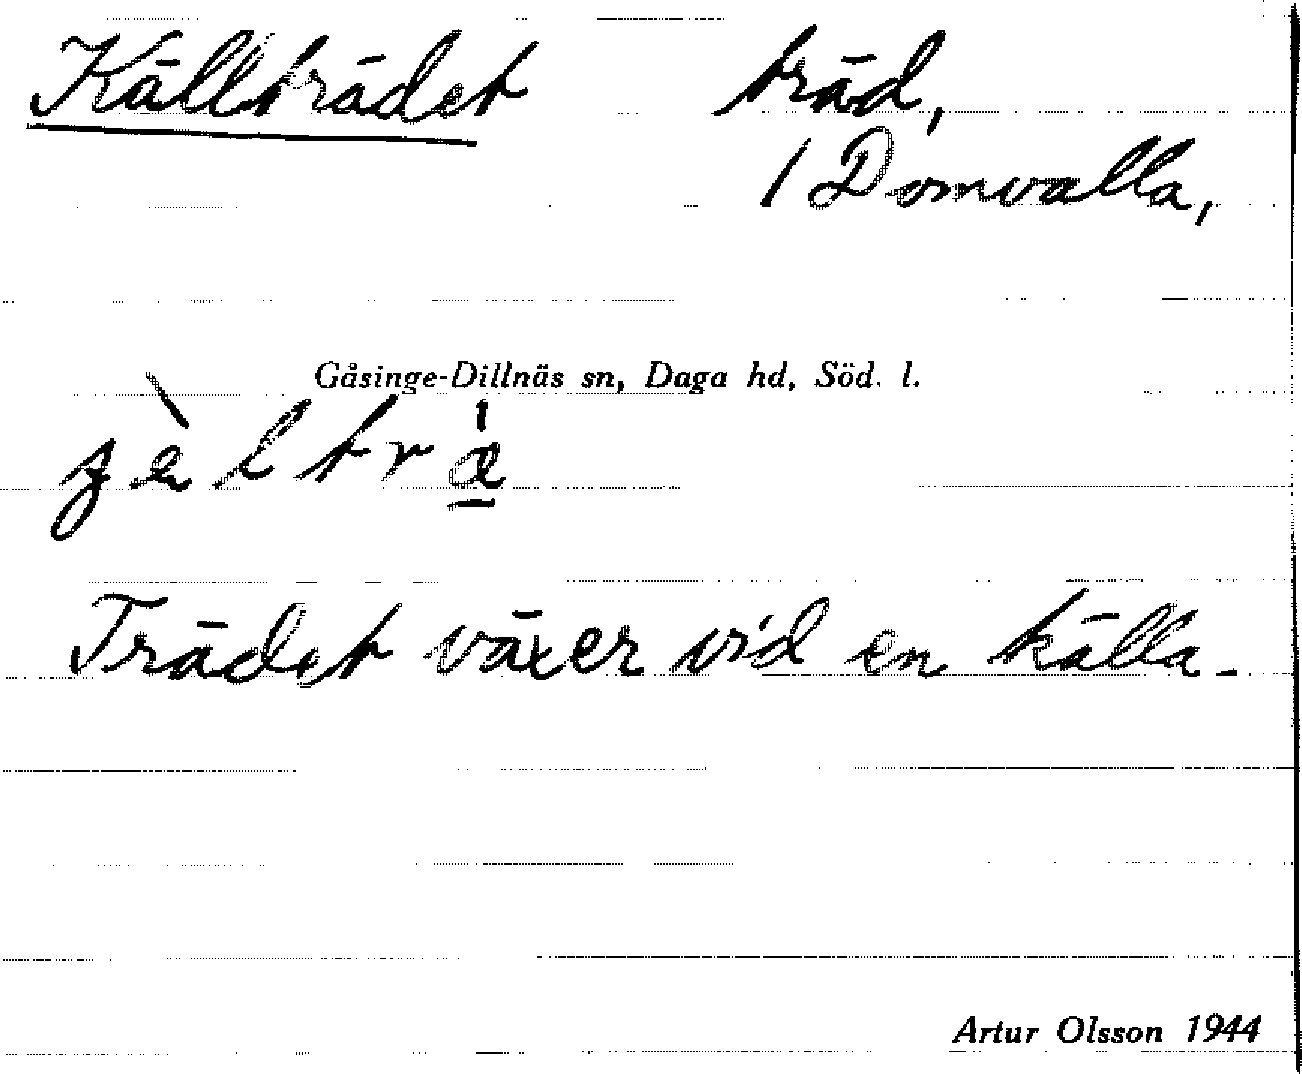 Källträdet träd,
/ Domvalla,
Gåsinge-Dillnäs sn, Daga hd, Söd. l.
Trädet växer vid en källa.
Artur Olsson 1944